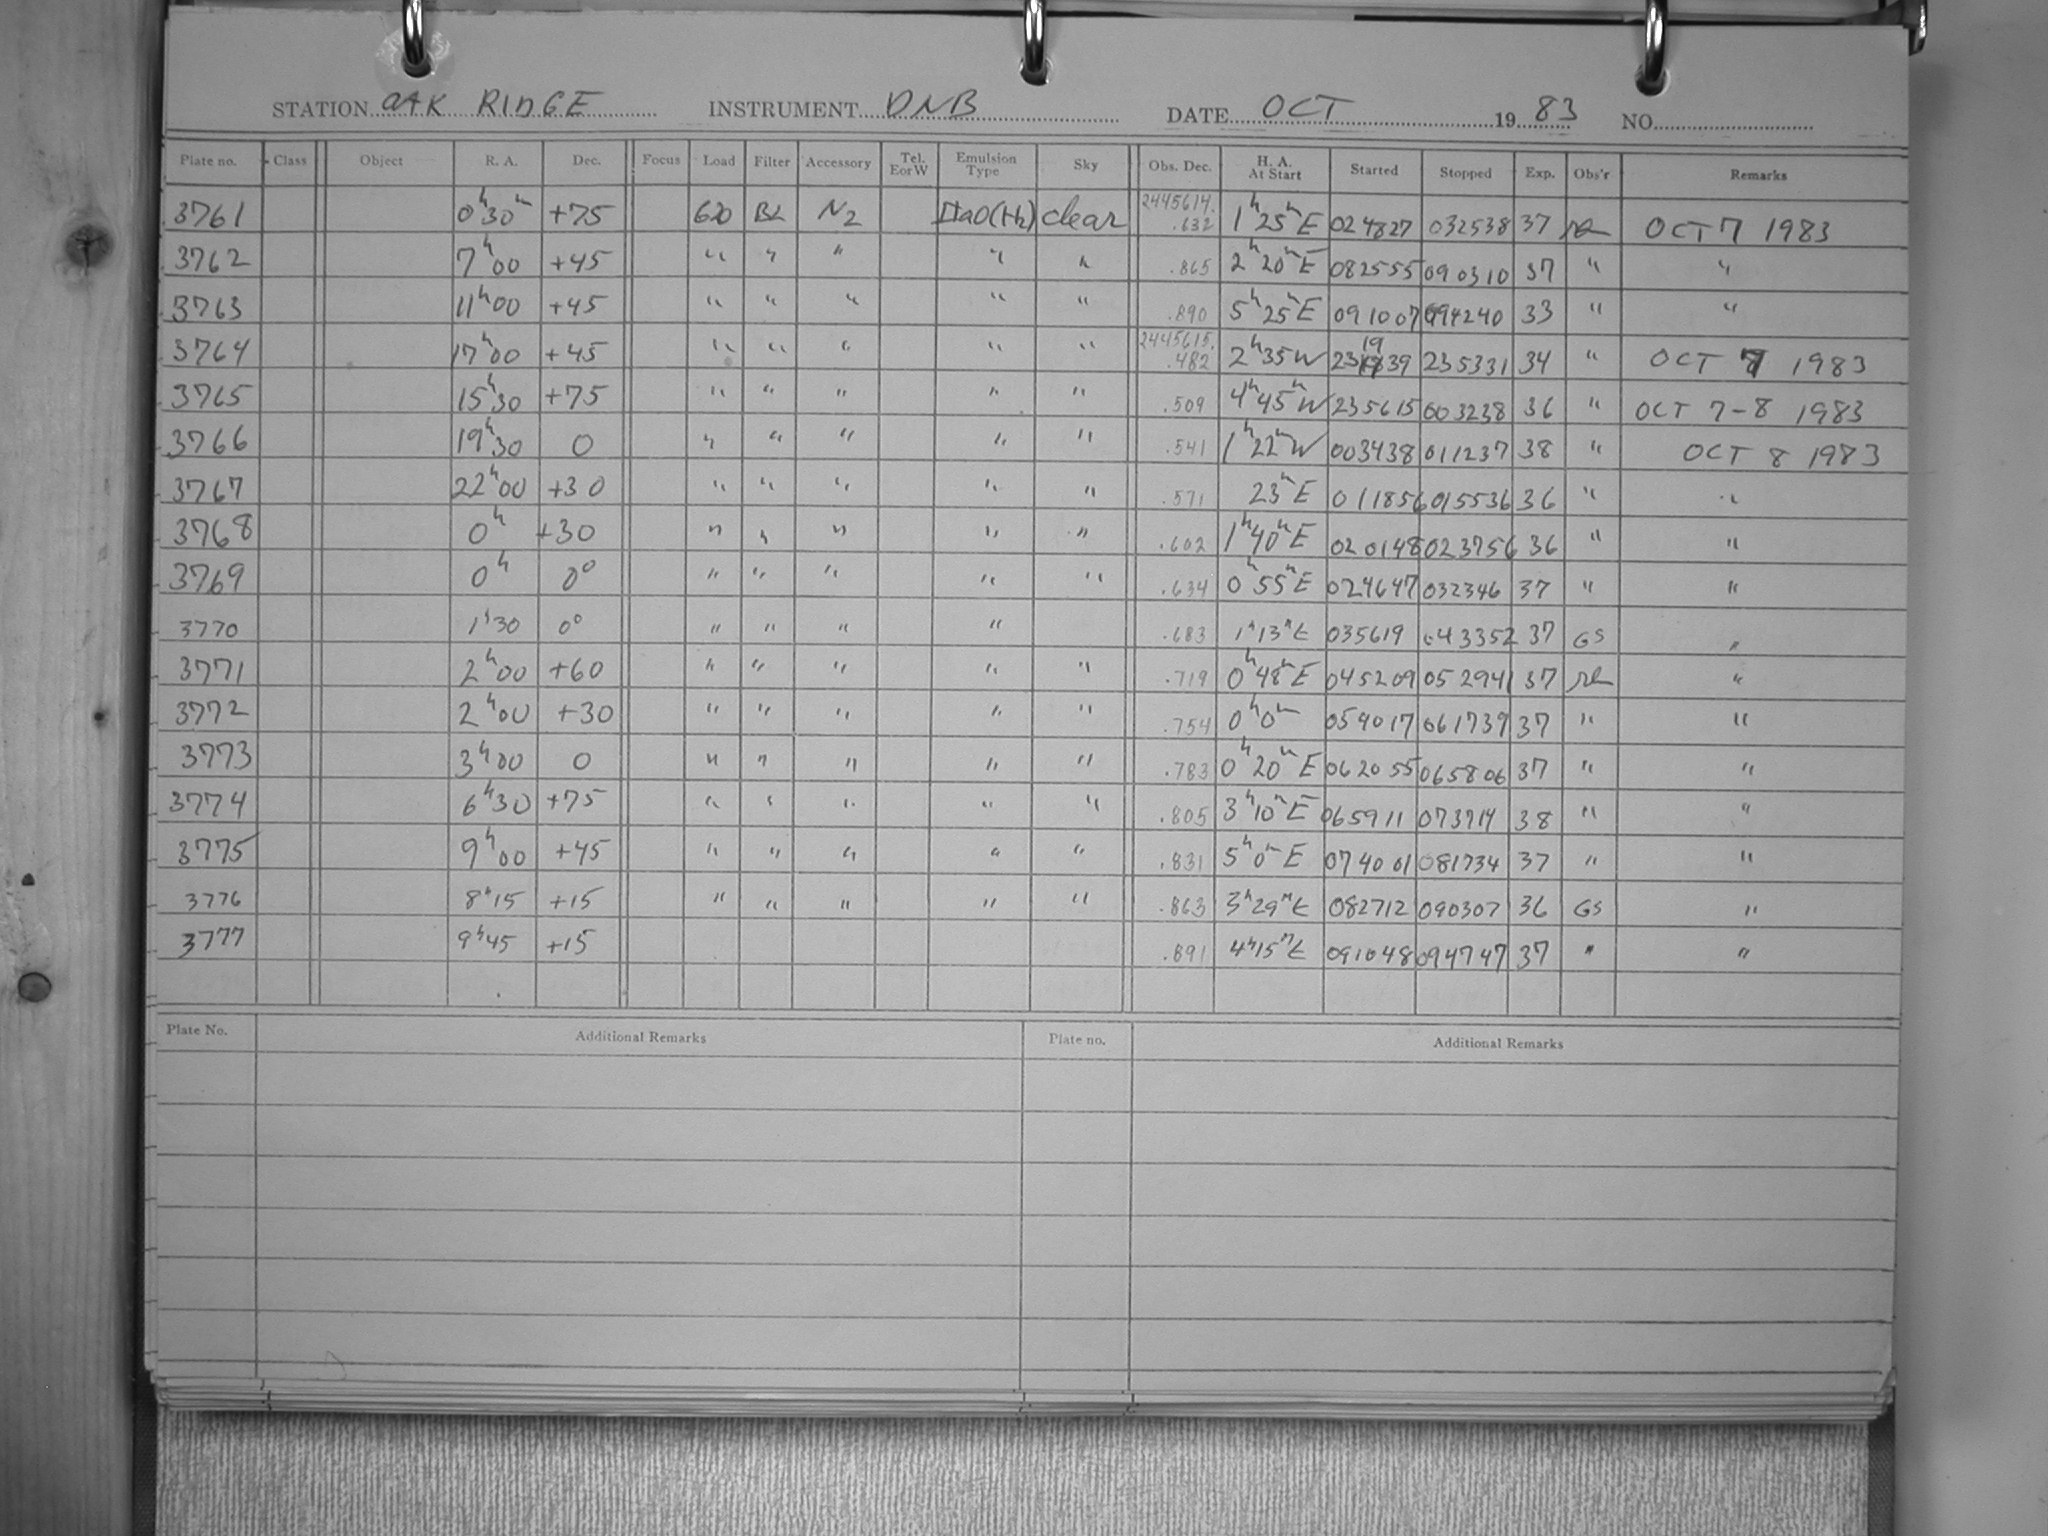 STATION OAK RIDGE INSTRUMENT DNB DATE OCT 19 83 NO.
Plate no. Class Object R. A. Dec. Focus Load Filter Accessory Tel. E or W Emulsion Type Sky Obs. Dec. H. A. At Start Started Stopped Exp. Obs'r Remarks
3761 0h30m +75 620 BL N2 IIaO(H2) clear 2445614.632 1h25mE 024827 032538 37 OCT 7 1983
3762 7h00 +45 " " " " " .865 2h20mE 082555 090310 37 " "
3763 11h00 +45 " " " " " .890 5h25mE 091007 094240 33 " "
3764 17h00 +45 " " " " " 2445615.482 2h35W 231939 235331 34 " OCT 7 1983
3765 15h30 +75 " " " " " .509 4h45mW 235615 003238 36 " OCT 7-8 1983
3766 19h30 0 " " " " " .541 1h22mW 003438 011237 38 " OCT 8 1983
3767 22h00 +30 " " " " " .571 23mE 011856 015536 36 " "
3768 0h +30 " " " " " .602 1h40mE 020148 023756 36 " "
3769 0h 0° " " " " " .634 0h55mE 024647 032346 37 " "
3770 1h30 0° " " " " .683 1h13mE 035619 043352 37 GS "
3771 2h00 +60 " " " " " .719 0h48mE 045209 052941 37 "
3772 2h00 +30 " " " " " .754 0h0m 054017 061739 37 " "
3773 3h00 0 " " " " " .783 0h20mE 062055 065806 37 " "
3774 6h30 +75 " " " " " .805 3h10mE 065911 073714 38 " "
3775 9h00 +45 " " " " " .831 5h0mE 074001 081734 37 " "
3776 8h15 +15 " " " " " .863 3h29mE 082712 090307 36 GS "
3777 9h45 +15 .891 4h15mE 091048 094747 37 " "
Plate No. Additional Remarks Plate no. Additional Remarks